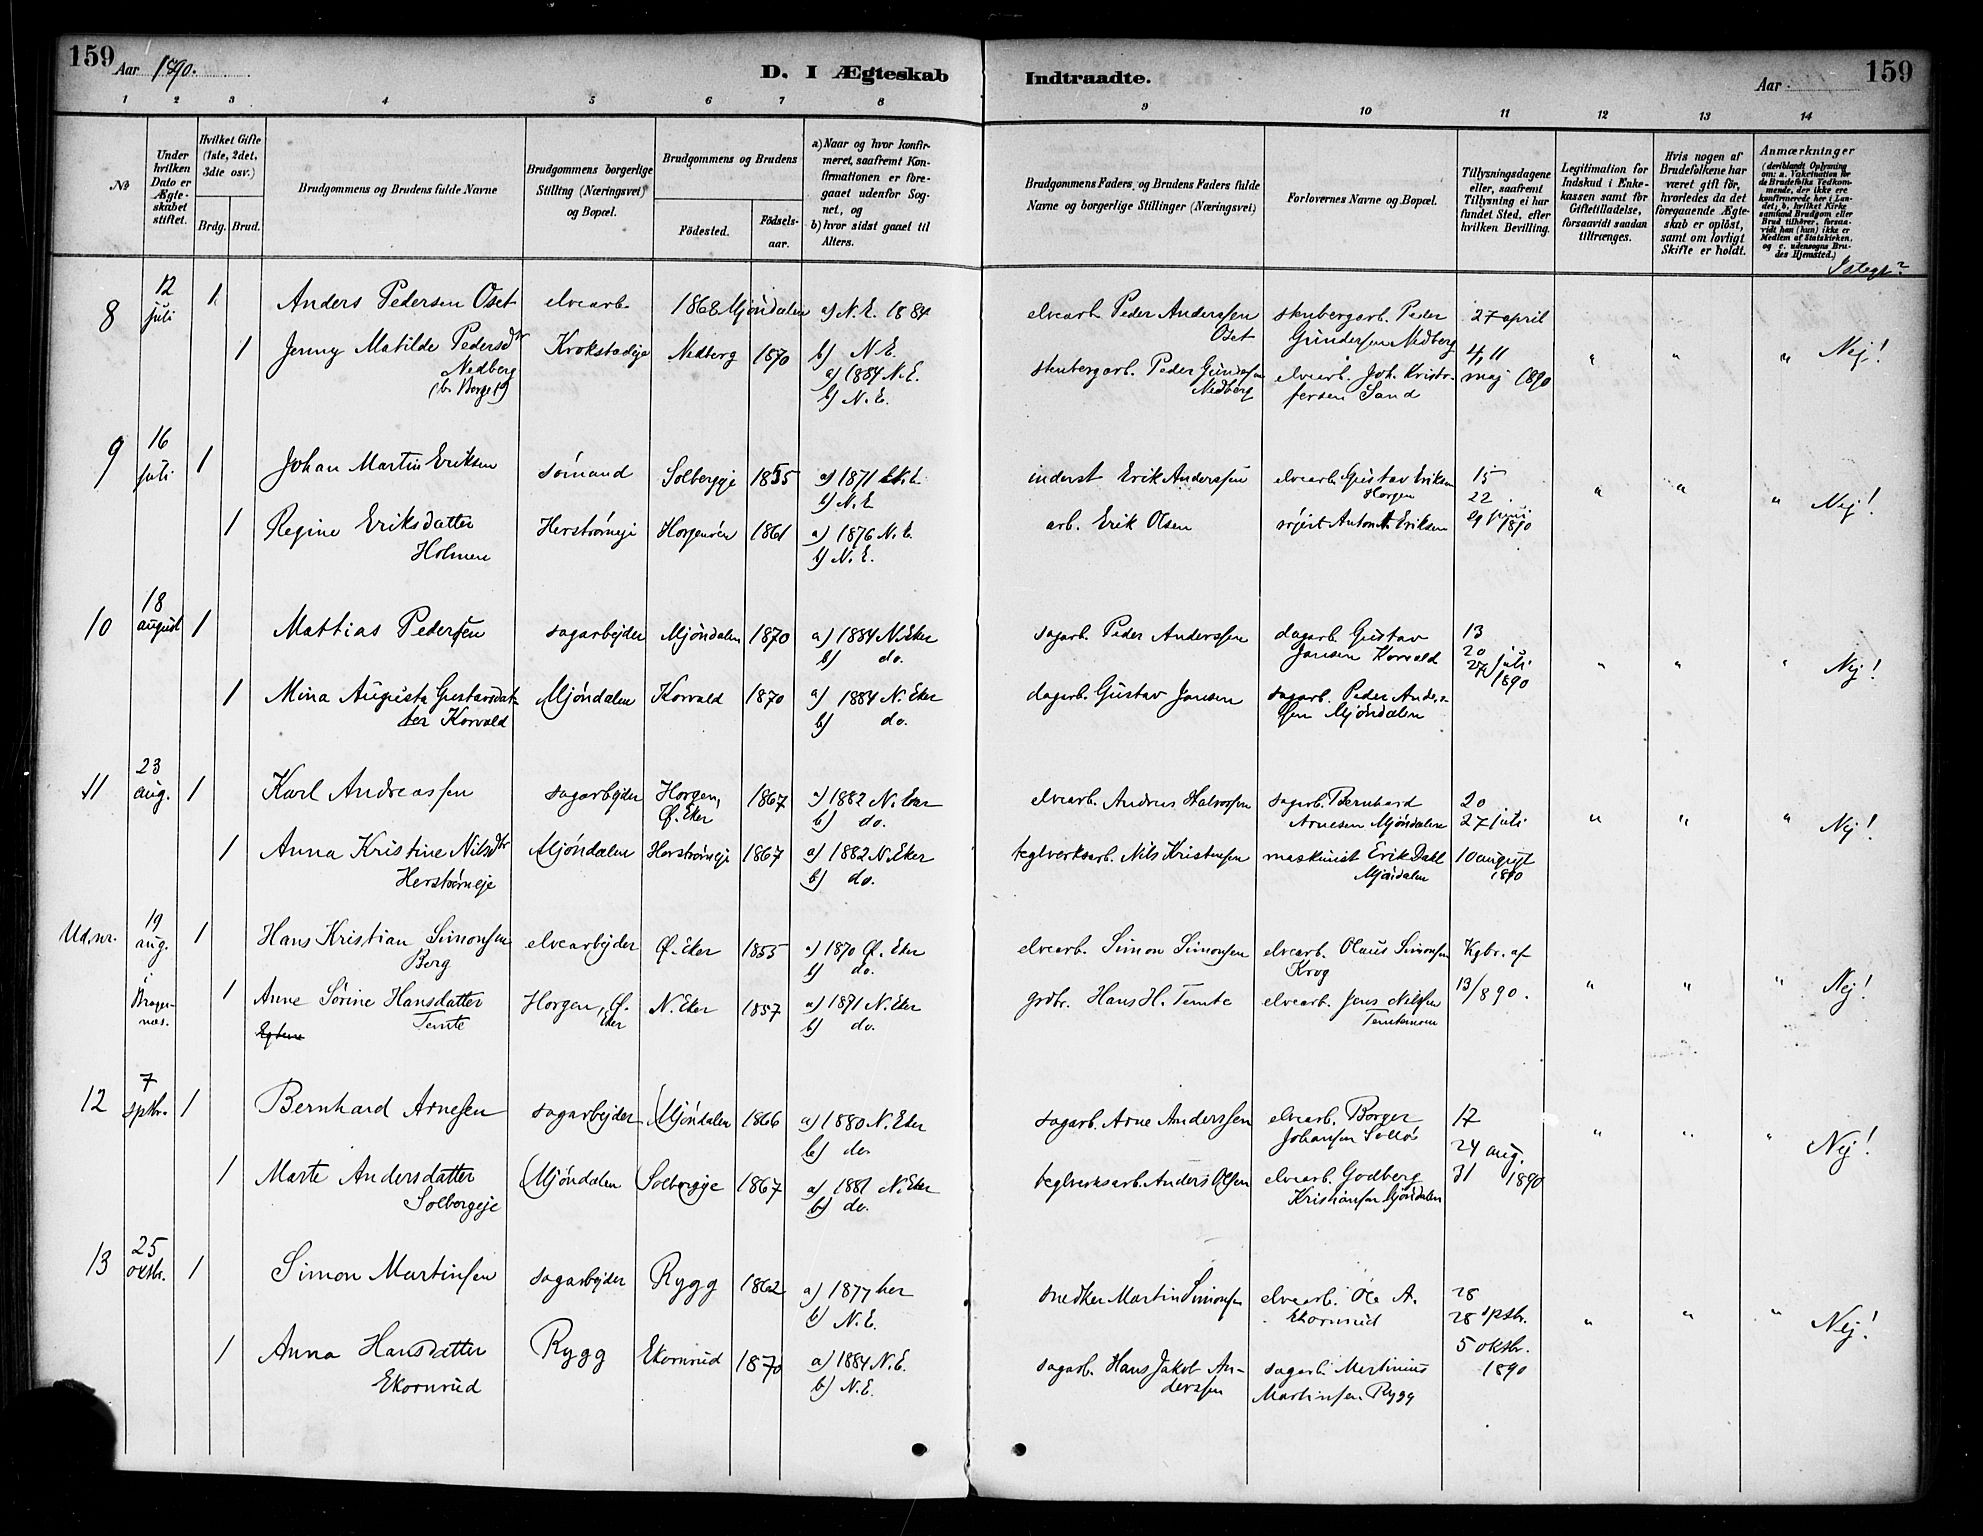 159 Aar 1890. D. I Ægteskab Indtraadte. Aar 159
1 2 3 4 5 6 7 8 9 10 11 12 13 14
№
Under hvilken Dato er Ægteskabet stiftet.
Hvilket Gifte (1ste, 2det, 3dte osv.)
Brdg. Brud.
Brudgommens og Brudens fulde Navne
Brudgommens borgerlige Stilling (Næringsvei) og Bopæl.
Brudgommens og Brudens
Fødested. Fødselsaar.
a) Naar og hvor konfirmeret, saafremt Konfirmationen er foregaaet udenfor Sognet, og
b) hvor sidst gaaet til Alters.
Brudgommens Faders og Brudens Faders fulde Navne og borgerlige Stillinger (Næringsvei)
Forlovernes Navne og Bopæl.
Tillysningsdagene eller, saafremt Tillysning ei har fundet Sted, efter hvilken Bevilling.
Legitimation for Indskud i Enkekassen samt for Giftetilladelse, forsaavidt saadan tiltrænges.
Hvis nogen af Brudefolkene har været gift før, hvorledes da det foregaaende Ægteskab er opløst, samt om lovligt Skifte er holdt.
Anmærkninger
(deriblandt Oplysning om: a. Vakcination for de Brudefolks Vedkommende, der ikke ere konfirmerede her i Landet; b. hvilket Kirkesamfund Brudgom eller Brud tilhører, forsaavidt han (hun) ikke er Medlem af Statskirken, og c. udensogns Brudes Hjemsted.)
8 12 juli 1 Anders Pedersen Oset elvearb. 1868 Mjøndalen a) N.E. 1884 elvearb. Peder Anderssen Oset stenbergarb. Peder Gundersen Nedberg 27 april
1 Jenny Matilde Pedersdtr Nedberg Krokstadeje Nedberg 1870 b) N.E. a) 1884 N.E. b) N.E. stenbergarb. Peder Gundersen Nedberg elvearb. Joh. Kristofersen Sand 4, 11 maj 1890 " " " Nej!
9 16 juli 1 Johan Martin Eriksen sømand Solbergeje 1855 a) 1871 N.E. b) N.E. inderst Erik Anderssen elvearb. Gustav Eriksen Horgen 15 22
1 Regine Eriksdatter Holmen Herstrømeje Horgenøen 1861 a) 1876 N.E. b) N.E. arb. Erik Olsen Anton Eriksen 29 juni 1890 " " " Nej!
10 18 august 1 Mattias Pedersen sagarbejder Mjøndalen 1870 a) 1884 N. Eker b) do. sagarb. Peder Anderssen dagarb. Gustav Jansen Korvald 13 20 27 juli 1890 " " " Nej!
1 Mina Augusta Gustavsdatter Korvald Mjøndalen Korvald 1870 a) 1884 N. Eker b) do. dagarb. Gustav Jansen sagarb. Peder Anderssen Mjøndalen
11 23 aug. 1 Karl Andreassen sagarbejder Horgen, Ø. Eker 1867 a) 1882 N. Eker b) do. elvearb. Andreas Halvorsen sagarb. Bernhard Arnesen Mjøndalen 20 27 juli " " " Nej!
1 Anna Kristine Nilsdtr Herstrømeje Mjøndalen Herstrømeje 1867 a) 1882 N. Eker b) do. teglverksarb. Nils Kristensen maskinist Erik Dahl Mjøndalen 10 august 1890
Ud.nr. 19 aug. i Bragernæs. 1 Hans Kristian Simonsen Borg elvearbejder Ø. Eker 1855 a) 1870 Ø. Eker b) do. elvearb. Simon Simonsen elvearb. Olaus Simonsen Krog Kgbr. af
1 Anne Sørine Hansdatter Temte Horgen, Ø. Eker N. Eker 1857 a) 1871 N. Eker b) do. grdbr. Hans H. Temte elvearb. Jens Nilssen Temtemoen 13/8 90. " " " Nej!
12 7 sptbr. 1 Bernhard Arnesen sagarbejder Mjøndalen 1866 a) 1880 N. Eker b) do. sagarb. Arne Anderssen elvearb. Borger Johansen 17 24 aug. " " " Nej!
1 Marte Andersdatter Solbergeje Mjøndalen Solbergeje 1867 a) 1881 N. Eker b) do. teglverksarb. Anders Olsen elvearb. Godberg Kristiansen Mjøndalen 31 1890
13 25 oktbr. 1 Simon Martinsen sagarbejder Rygg 1862 a) 1877 her b) N.E. snedker Martin Simonsen elvearb. Ole A. Ekornrud 28 sptbr. " " " Nej!
1 Anna Hansdatter Ekornrud Rygg Ekornrud 1870 a) 1884 N.E. b) N.E. sagarb. Hans Jakob Anderssen sagarb. Martinius Martinsen Rygg 5 oktbr. 1890